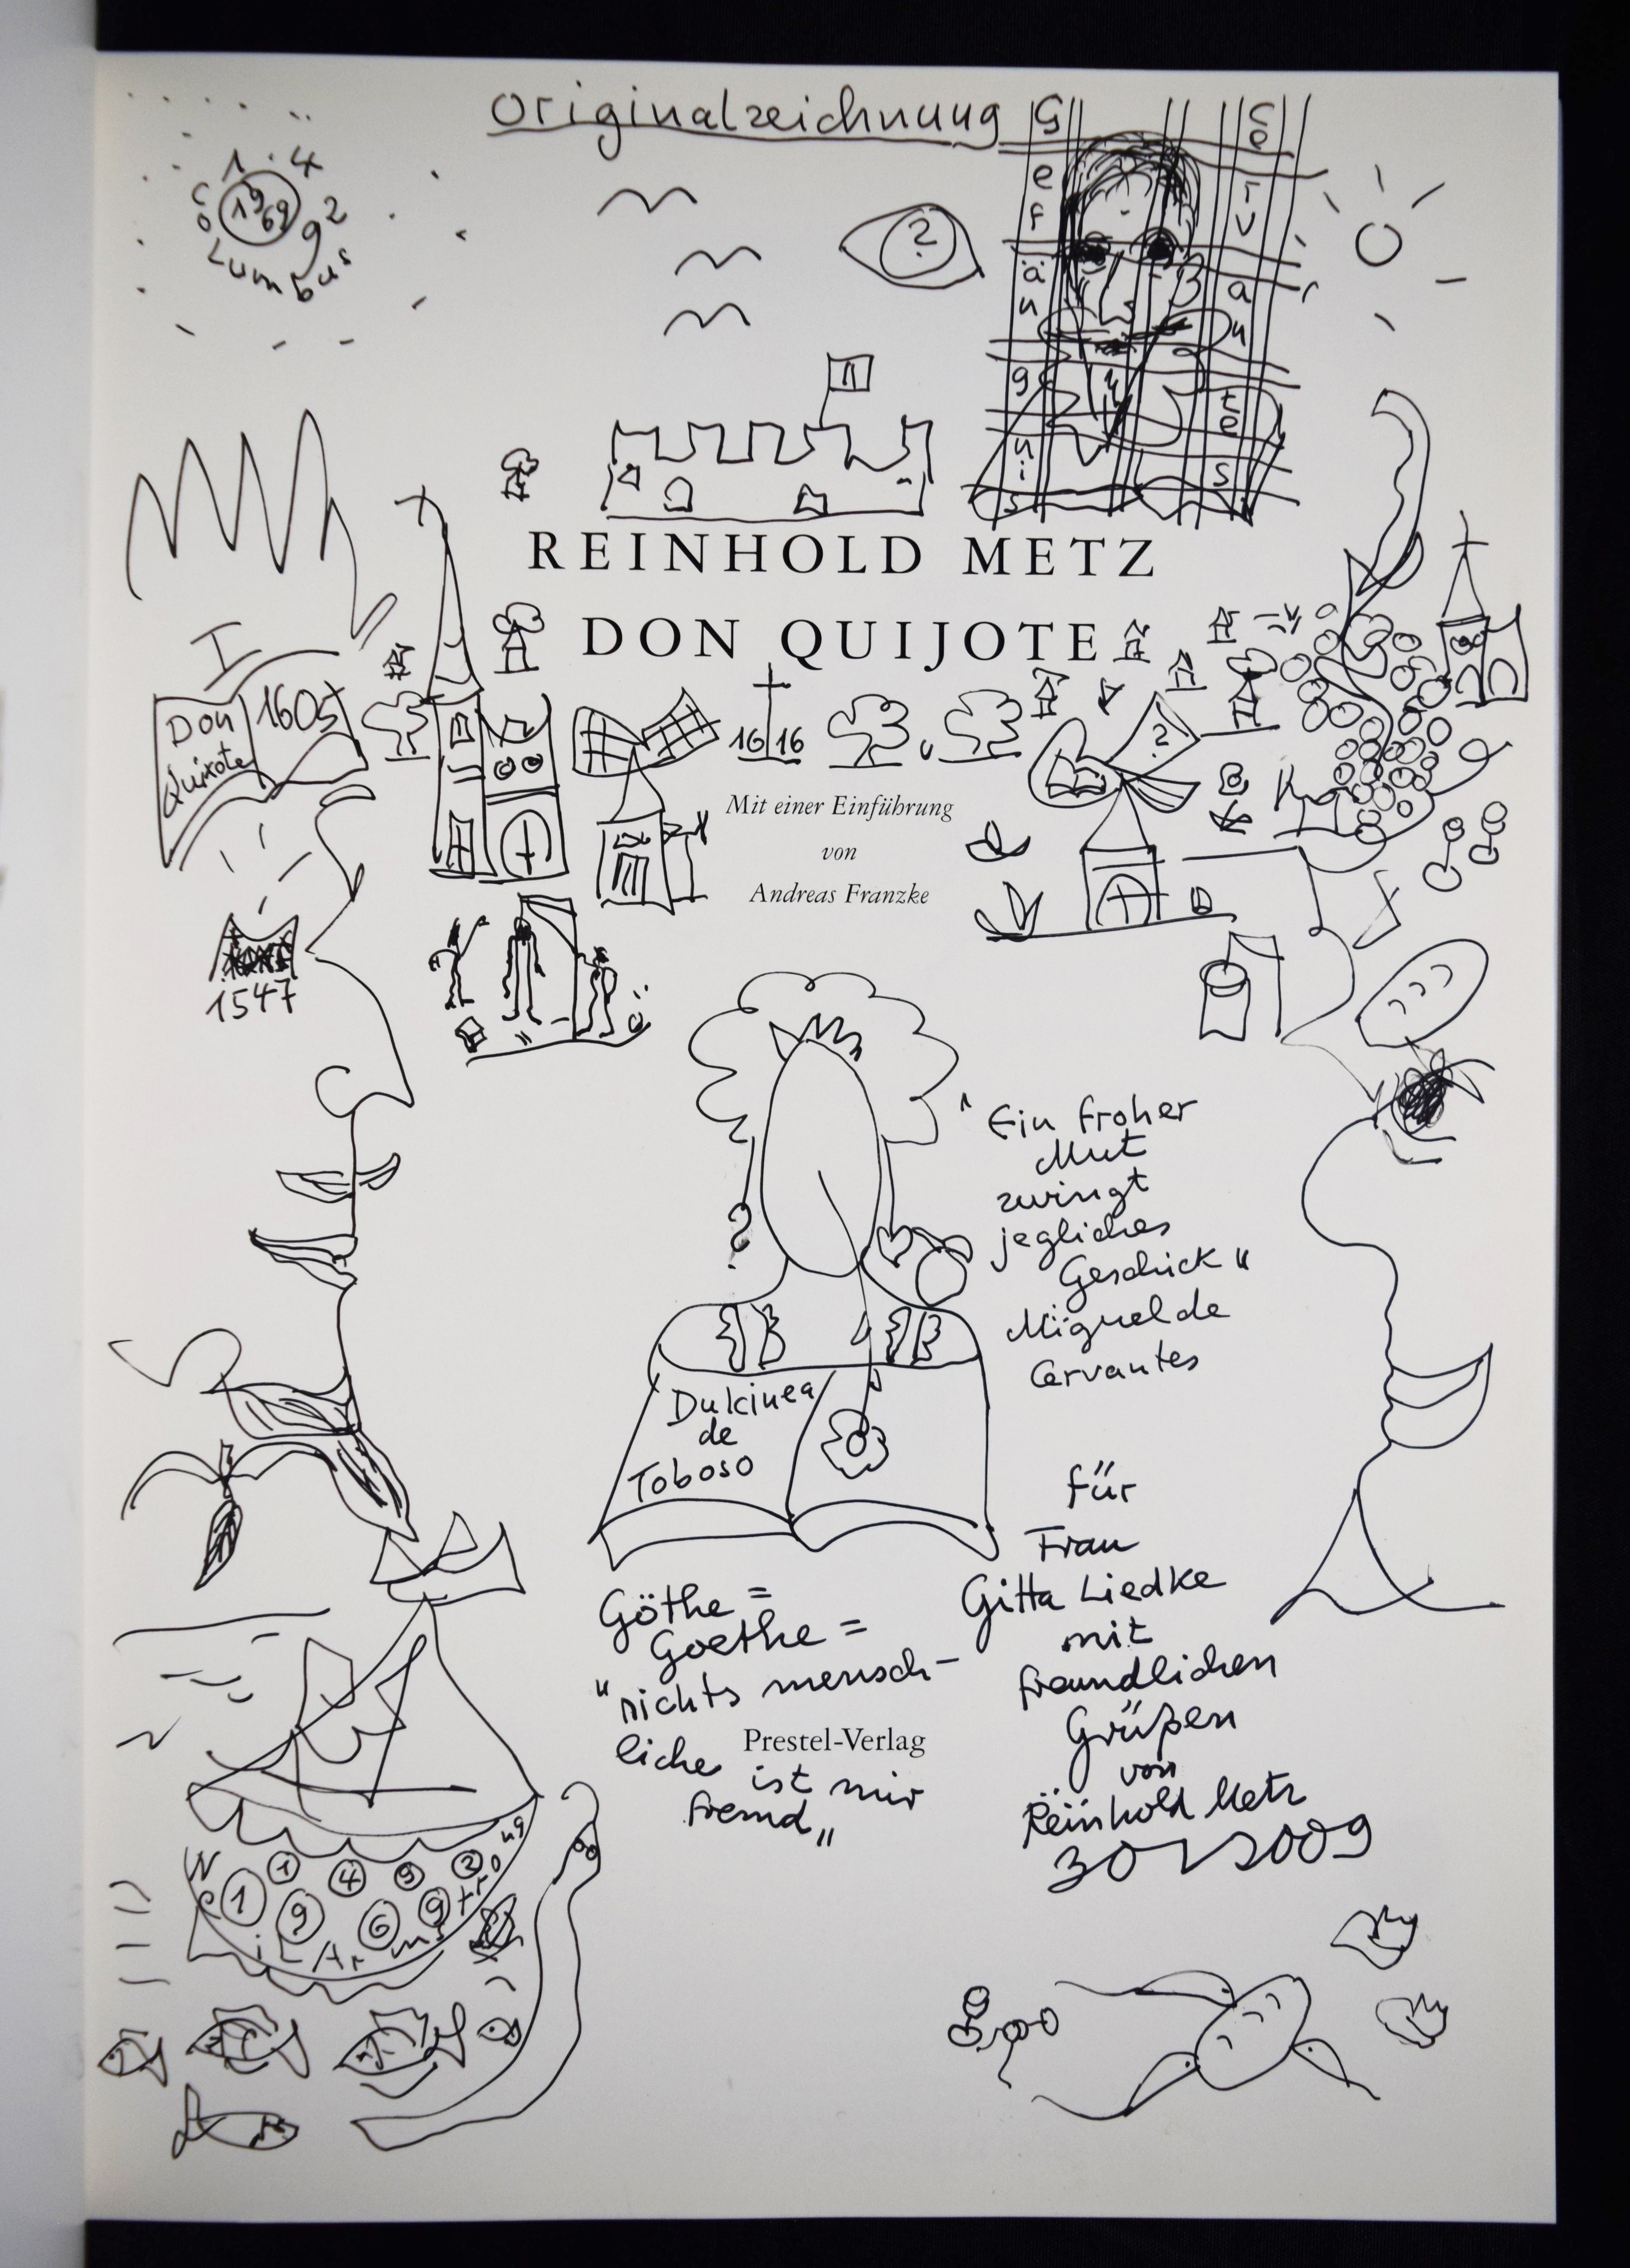 Originalzeichnung
1492
1969
Columbus
?
Gefängnis
Cervantes
REINHOLD METZ
DON QUIJOTE
I
Don
Quixote
1605
16 16
?
Mit einer Einführung
von
Andreas Franzke
1547
?
"Ein froher
Mut
zwingt
jegliches
Geschick"
Miguel de
Cervantes
Dulcinea
de
Toboso
für
Frau
Gitta Liedke
mit
freundlichen
Grüßen
von
Reinhold Metz
Göthe =
Goethe =
"nichts mensch-
liche
Prestel-Verlag
ist mir
fremd"
1 4 9 2
1 9 6 9
Neil Armstrong